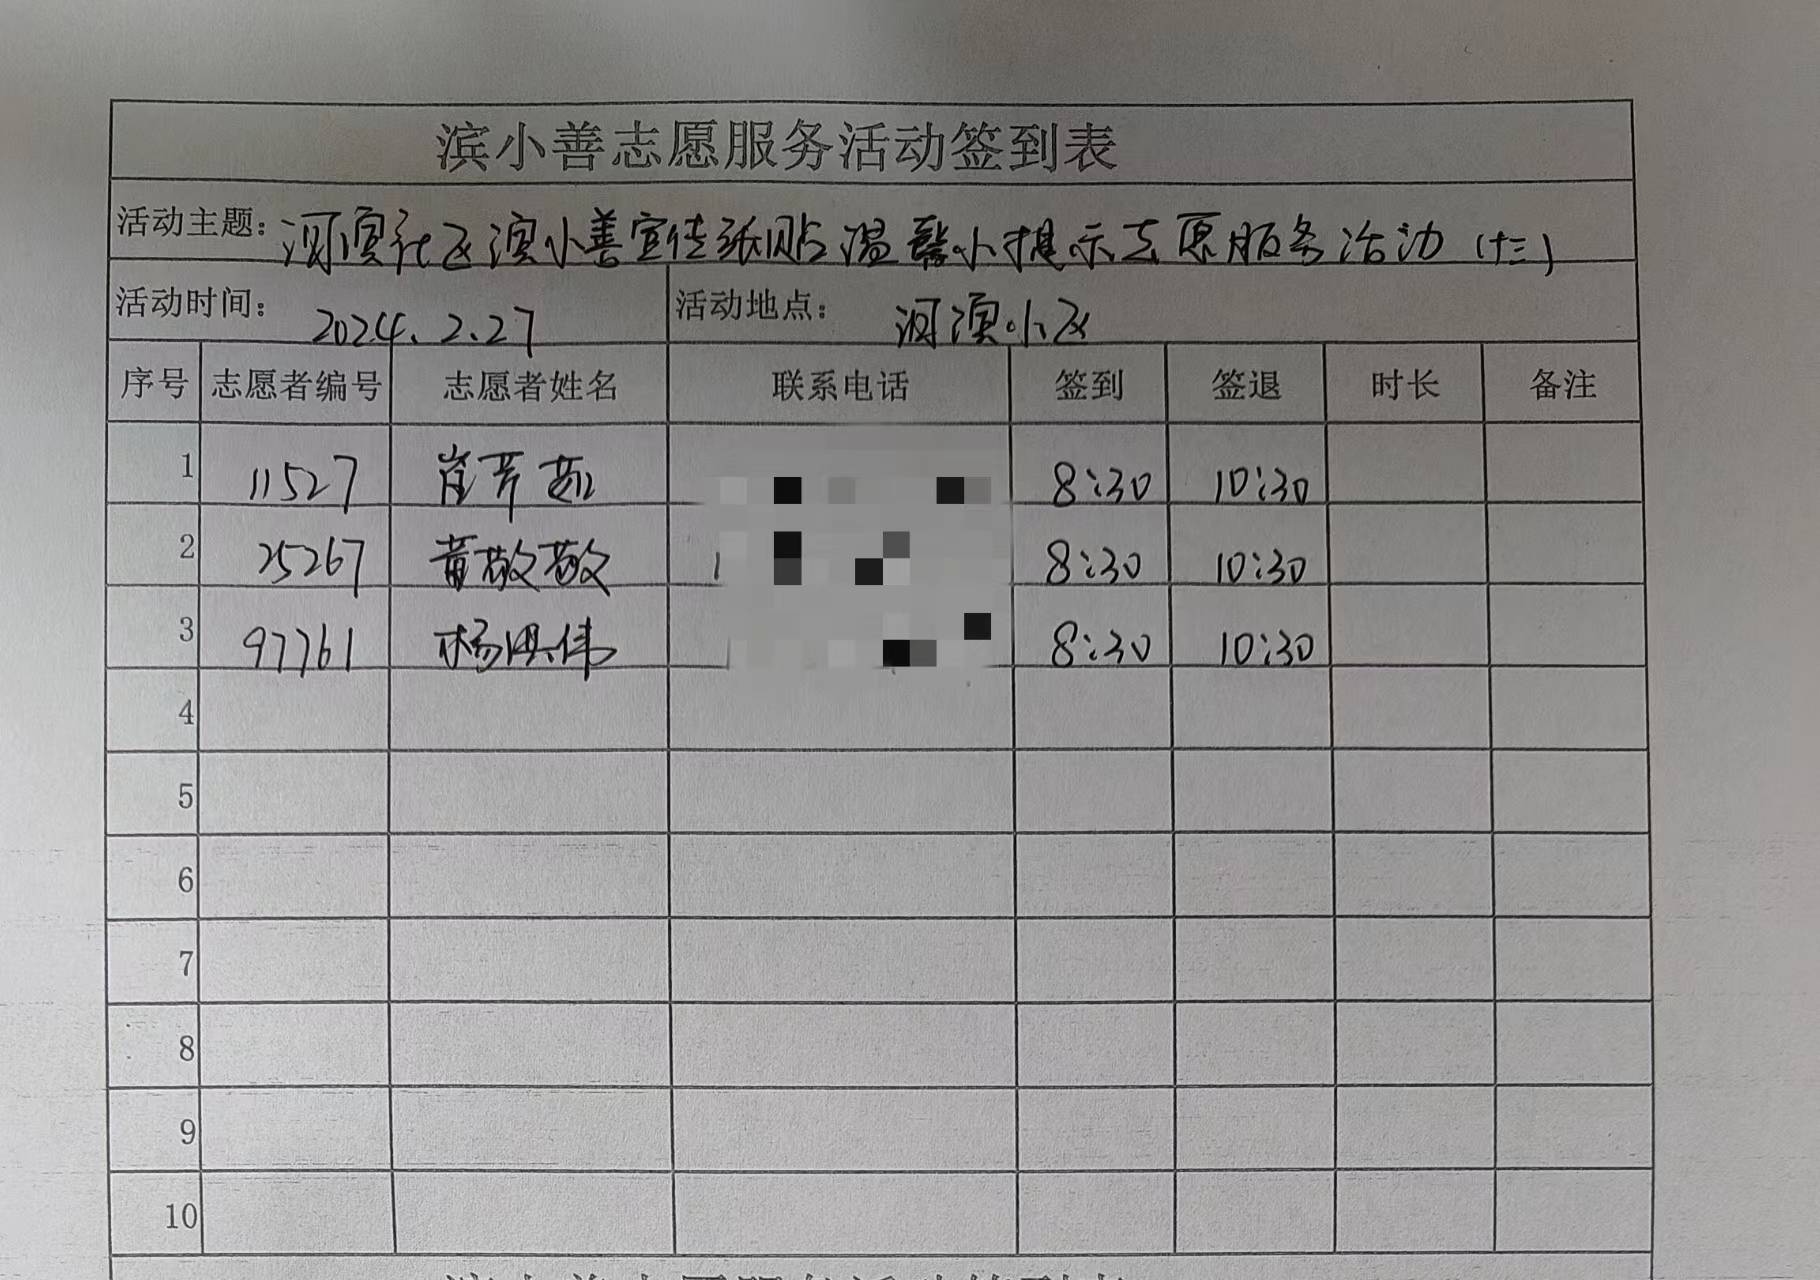 滨小善志愿服务活动签到表
活动主题：河滨社区滨小善宣传纸贴温馨小提示志愿服务活动（十三）
活动时间：2024.2.27 活动地点：河滨小区
序号 志愿者编号 志愿者姓名 联系电话 签到 签退 时长 备注
1 11527 肖芹 8:30 10:30
2 25267 黄敬敬 8:30 10:30
3 97761 杨洪伟 8:30 10:30
4
5
6
7
8
9
10
滨小善志愿服务活动签到表